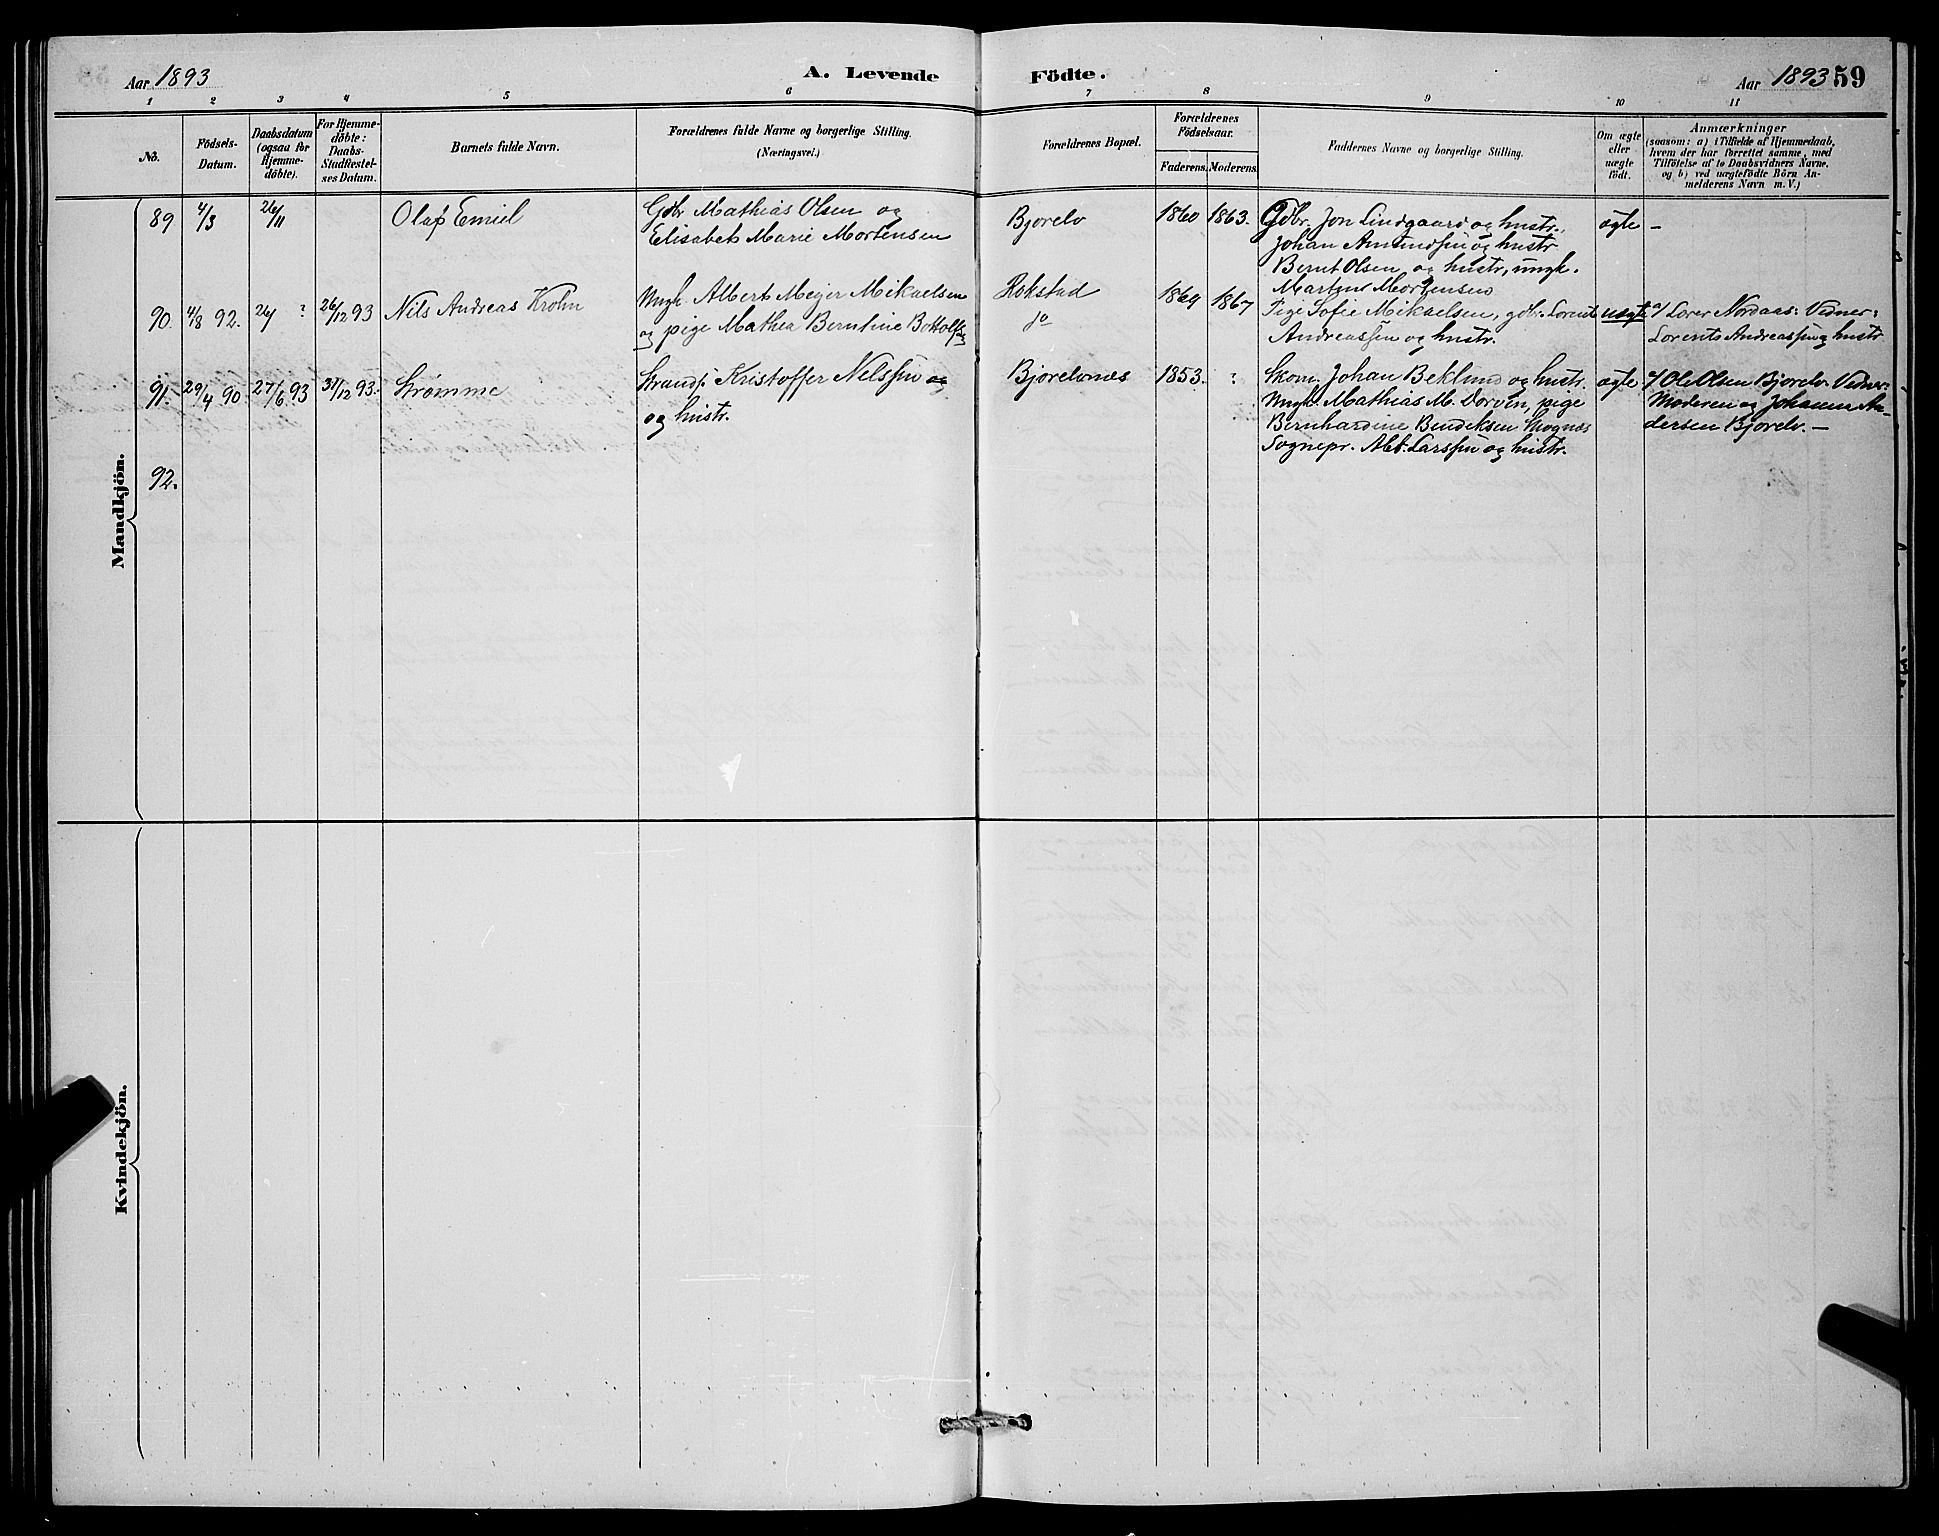 Aar 1893
A. Levende Födte.
Aar 1893 59
1 2 3 4 5 6 7 8 9 10 11
No.
Födsels-Datum.
Daabsdatum (ogsaa for Hjemme-döbte).
For Hjemme-döbte: Daabs-Stadfæstel-ses Datum.
Barnets fulde Navn.
Forældrenes fulde Navne og borgerlige Stilling.
(Næringsvei.)
Forældrenes Bopæl.
Forældrenes Födselsaar.
Faderens. Moderens.
Faddernes Navne og borgerlige Stilling.
Om ægte eller uægte födt.
Anmærkninger
(saasom: a) i Tilfælde af Hjemmedaab,
hvem der har forrettet samme, med
Tilföielse af to Daabsvidners Navne.
og b) ved uægtefödte Börn An-
melderens Navn m. V.)
Mandkjön.
89 4/3 26/11 Olaf Emiel Gdbr Mathias Olsen og Bjorelv 1860 1863. Gdbr. Jon Lindgaard og hustr., ægte –
Elisabeth Marie Mortensen Johan Amundsen og hustr
Bernt Olsen og hustr, ungk.
Martin Mortensen
90. 4/8 92. 26/ ? 26/12 93 Nils Andreas Krohn Ungk. Albert Mejer Mikaelsen Hokstad 1869 1867 Pige Sofie Mikaelsen, gdbr. Lorents uægte a/ Lærer Nordaas: Vidner:
og pige Mathea Berntine Bottolfs do Andreassen og hustr. Lorents Andreassen og hustr
91. 29/4 90 27/6 93 31/12 93. Strømme Strands. Kristoffer Nelssen og Bjorelvnes 1853. ? Skom. Johan Beklund og hustr. ægte a/ Ole Olsen Bjorelv. Vidner:
og hustr. Ungk. Mathias M. Dorven, pige Moderen og Johanna An-
Bernhardine Bendiksen Mognes dersen Bjorelv. –
Sognepr. Alb. Larssen og hustr.
92.
Kvindekjön.